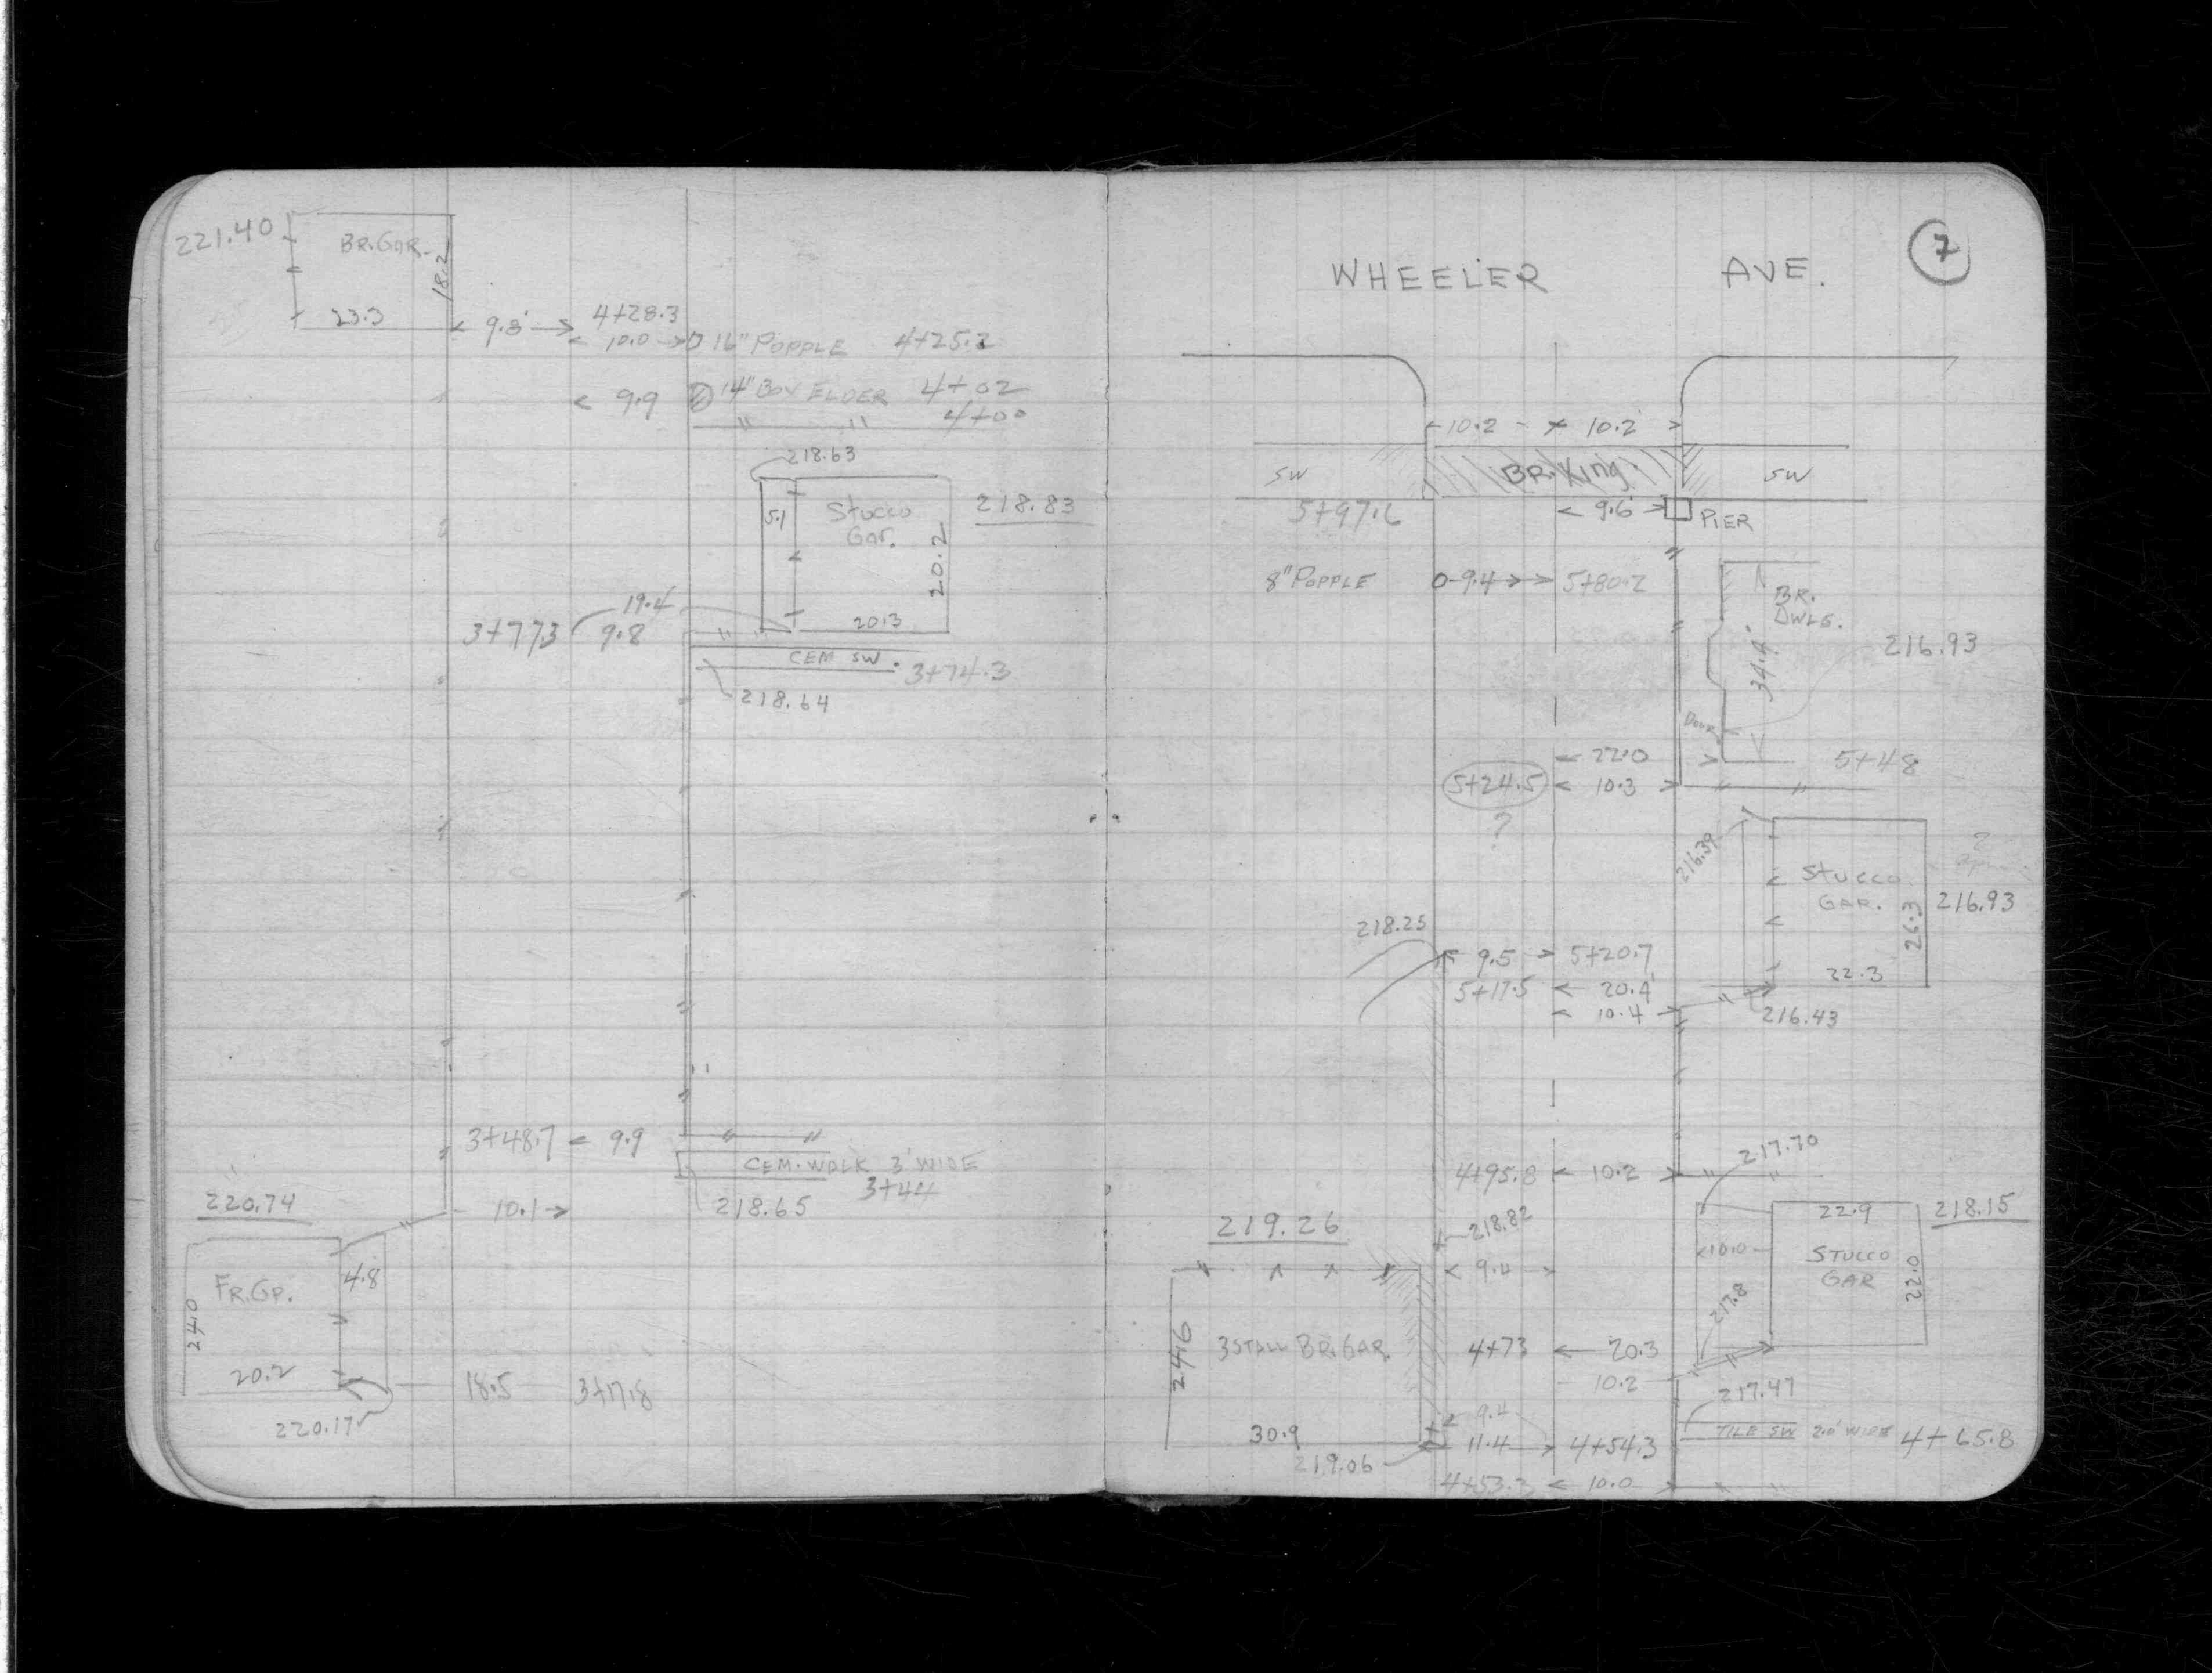 221.40
BR. GAR.
18.2
23.3
9.8'
4+28.3
10.0
16" POPPLE 4+25.2
9.9
14" BOX ELDER 4+02
4+00
218.63
5.1
STUCCO
GAR.
20.2
218.83
20.3
19.4
3+77.3 9.8
CEM SW. 3+74.3
218.64
3+48.7 9.9
CEM. WALK 3' WIDE
3+44
218.65
220.74
10.1
4.8
24.0
20.2
18.5 3+17.8
220.17
7
WHEELER AVE.
10.2 10.2
SW
SW
5+97.6
9.6
PIER
8" POPPLE 9.4 5+80.2
BR.
DWLG.
34.9
216.93
DOOR
22.0
5+48
5+24.5 10.3
?
216.39
?
STUCCO
GAR.
26.3
216.93
22.3
218.25
9.5 5+20.7
5+17.5 20.4
10.4
216.43
217.70
4+95.8 10.2
218.82
219.26
22.9
218.15
10.0
STUCCO
GAR
22.0
9.4
217.8
24.6
3 STALL BR. GAR.
4+73 20.3
10.2
217.47
9.4
30.9
11.4 4+54.3
TILE SW 2.0' WIDE 4+65.8
219.06
4+53.3 10.0